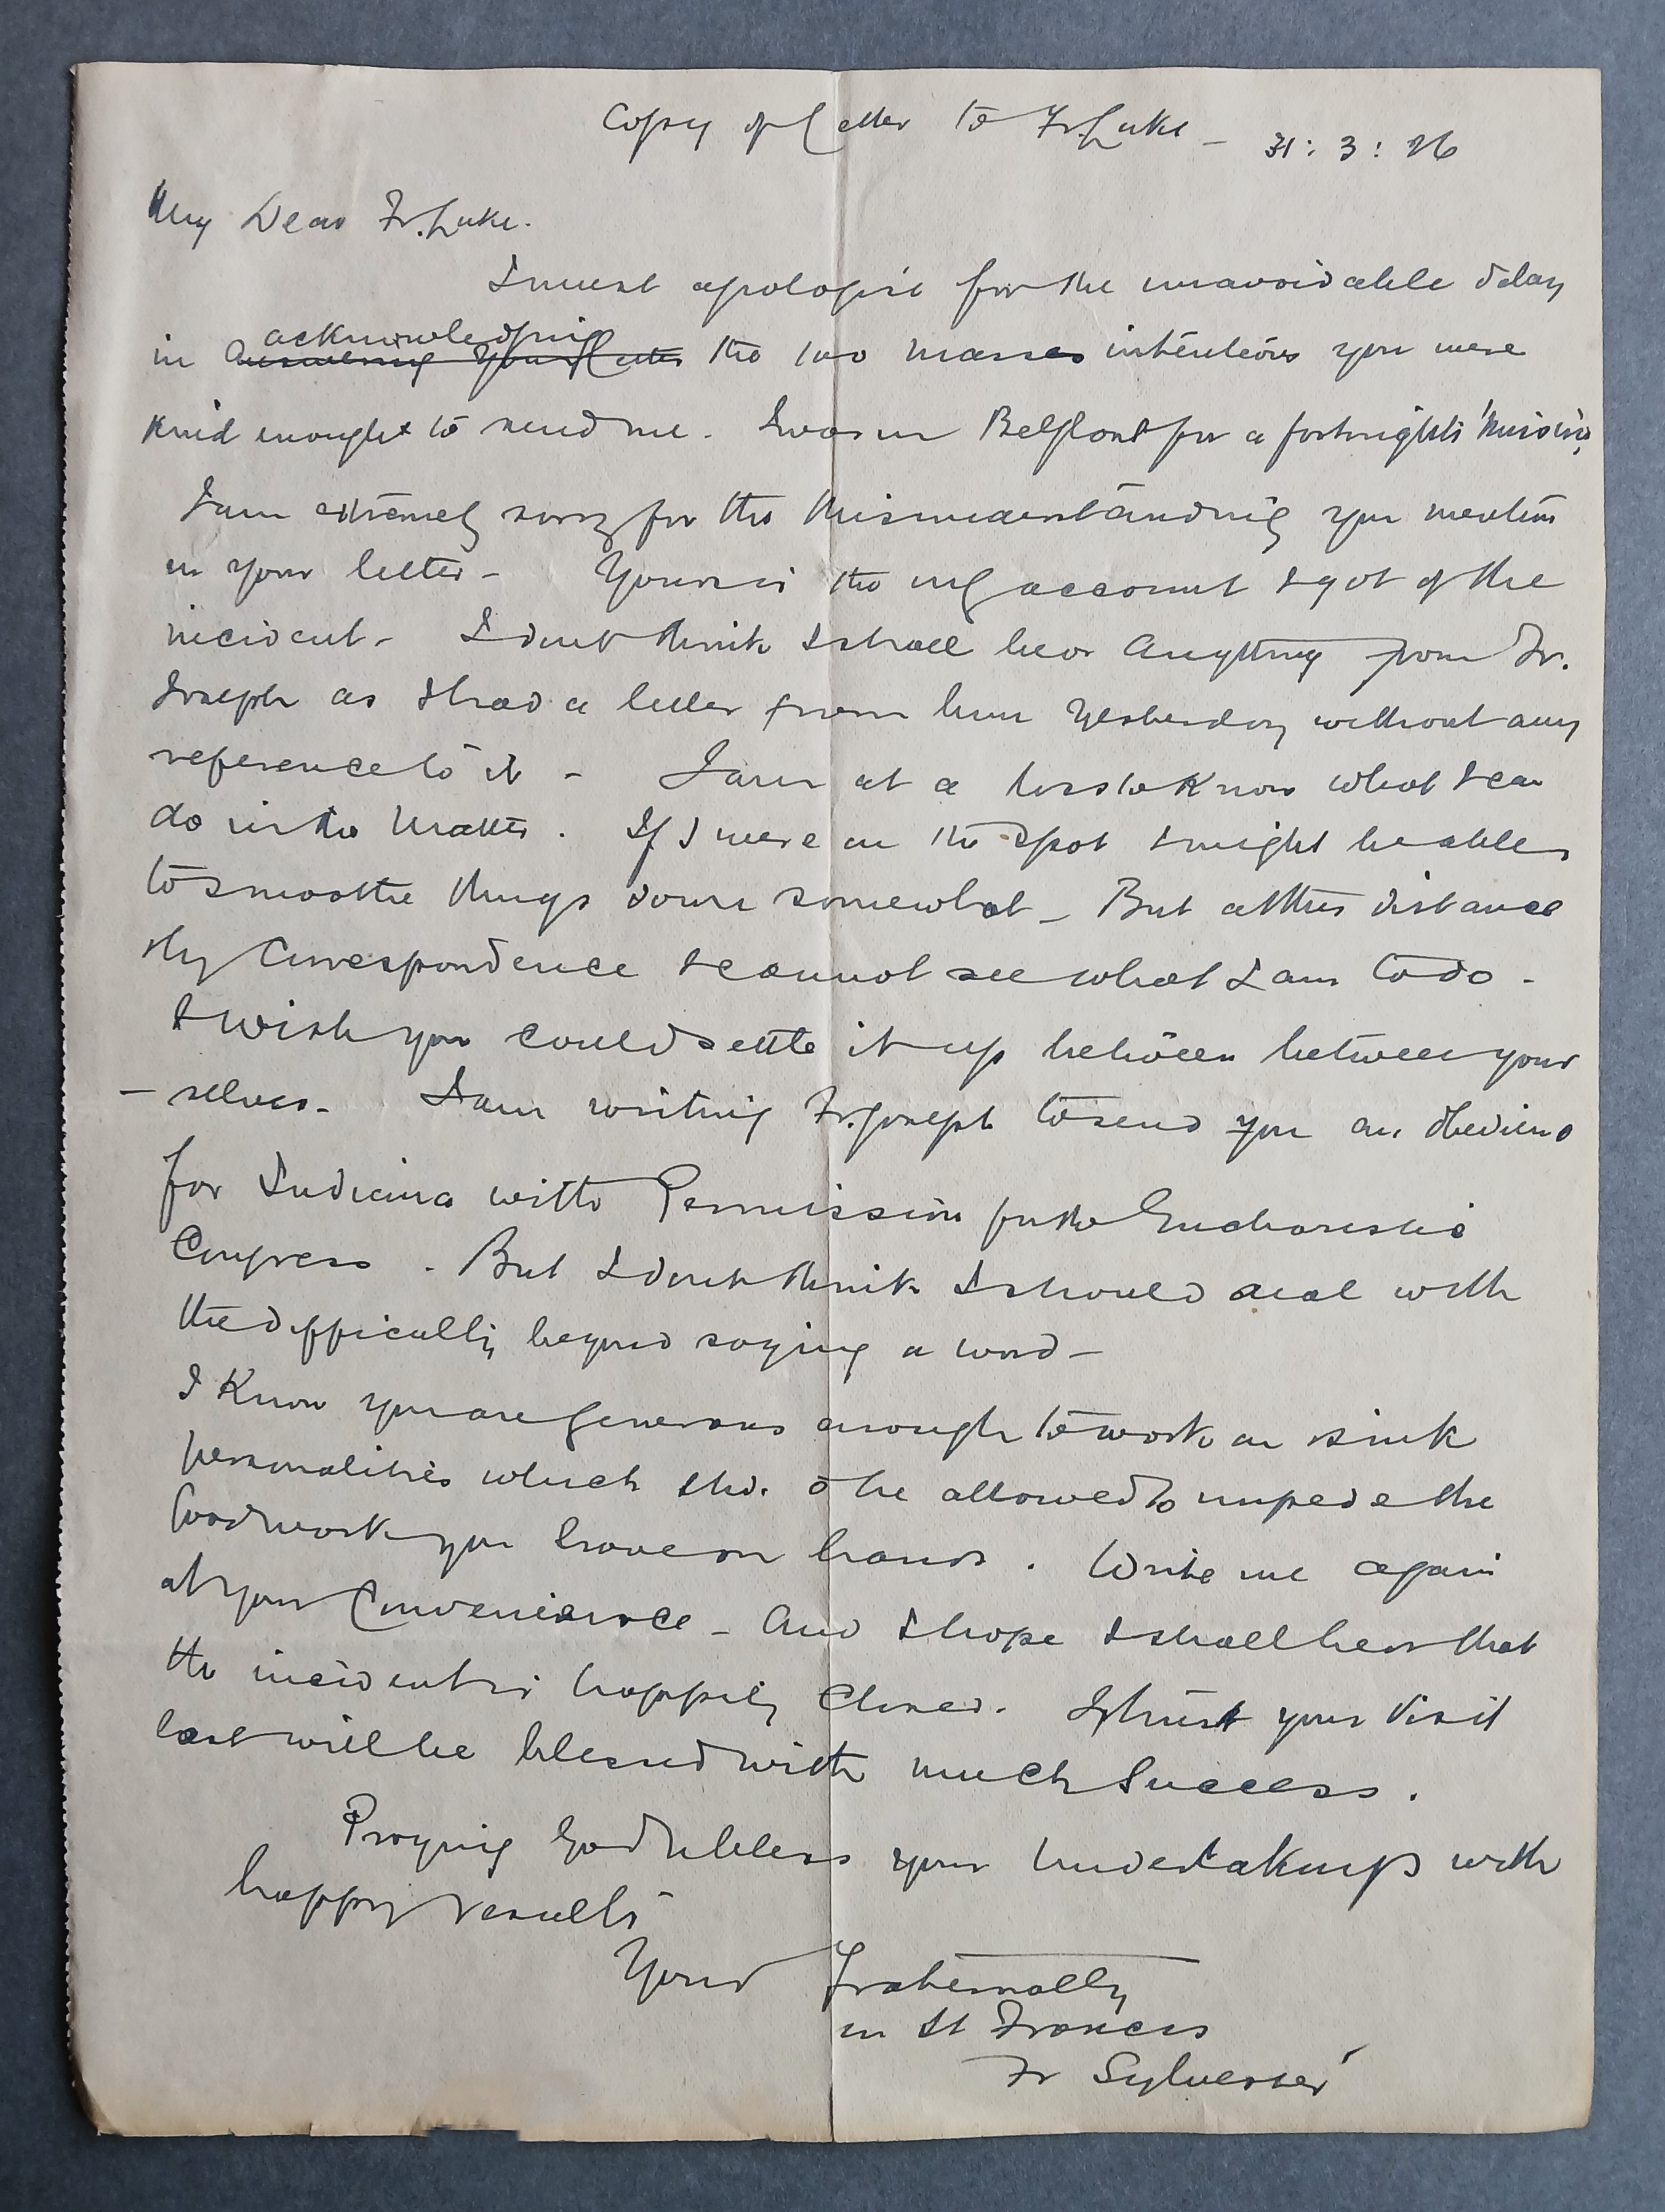 Copy of Letter to Fr. Luke - 31 : 3 : 26
My Dear Fr. Luke.
I must apologise for the unavoidable delay
acknowledging
in answering your letter the two masses intentions you were
kind enough to send me. I was in Belfast for a fortnight's 'mission,
I am extremely sorry for the misunderstanding you mention
in your letter - Yours is the only account I got of the
incident - I don't think I shall hear anything from Fr.
Joseph as I had a letter from him yesterday without any
reference to it - I am at a loss to know what I can
do in the matter. If I were on the spot I might be able
to smoothe things down somewhat - But at this distance
by correspondence I cannot see what I am to do -
I wish you could settle it up between between your
- selves - I am writing Fr. Joseph to send you an obedience
for Indiana with Permission for the Eucharistic
Congress - But I don't think I should deal with
the difficulty beyond saying a word -
I know you are generous enough to work on sink
personalities which shd. be allowed to impede the
Good work you have on hands. Write me again
at your convenience - And I hope I shall hear that
the incident is happily closed. I trust your visit
East will be blessed with much success.
Praying God to bless your undertakings with
happy results
Yours fraternally
in St Francis
Fr Sylvester